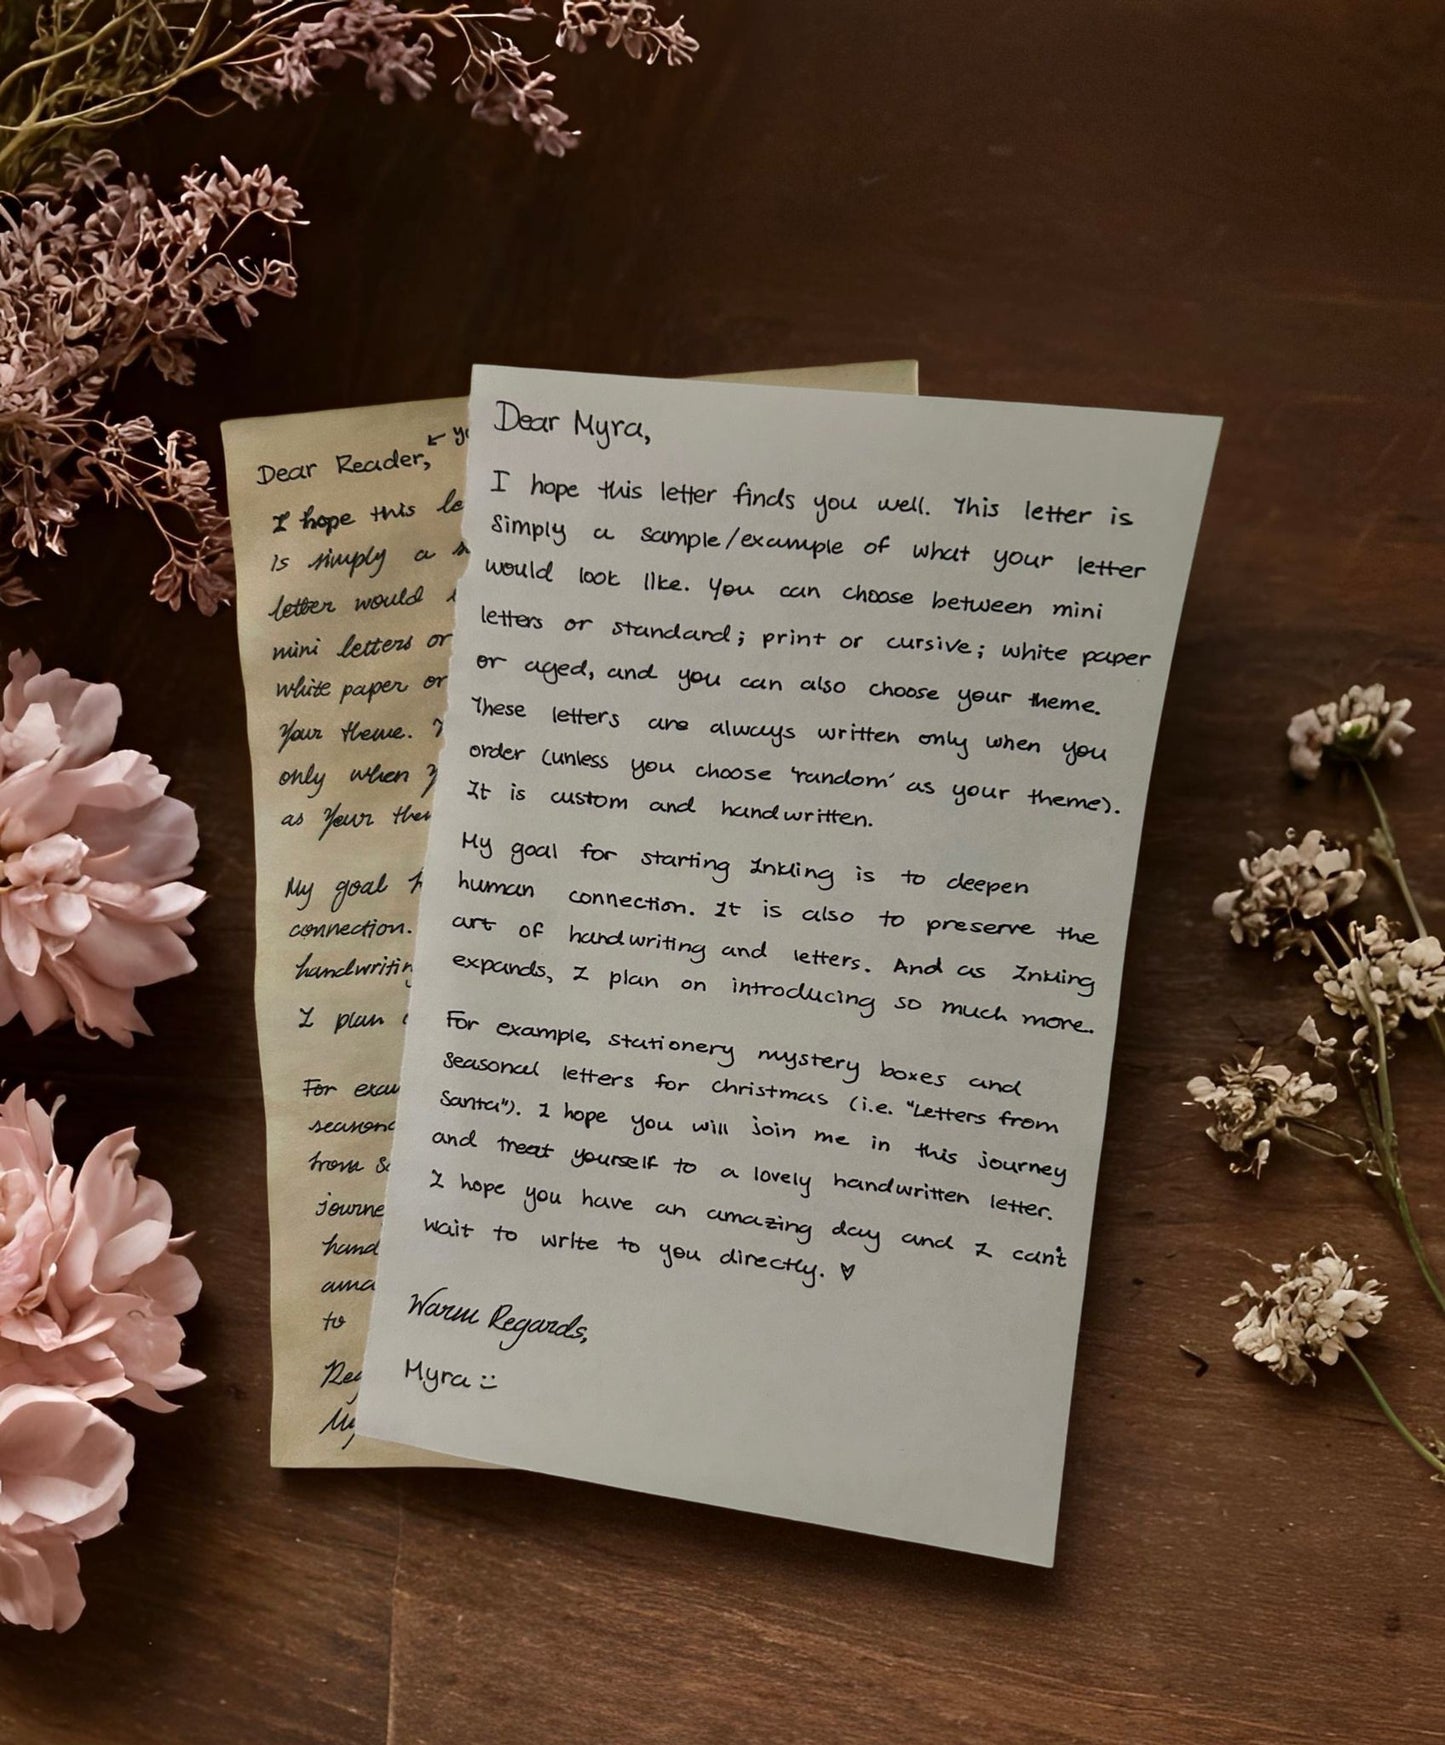 Dear Myra,
I hope this letter finds you well. This letter is
simply a sample/example of what your letter
would look like. You can choose between mini
letters or standard; print or cursive; white paper
or aged, and you can also choose your theme.
These letters are always written only when you
order (unless you choose 'random' as your theme).
It is custom and handwritten.
My goal for starting Inkling is to deepen
human connection. It is also to preserve the
art of handwriting and letters. And as Inkling
expands, I plan on introducing so much more.
For example, stationery mystery boxes and
seasonal letters for Christmas (i.e. "Letters from
Santa"). I hope you will join me in this journey
and treat yourself to a lovely handwritten letter.
I hope you have an amazing day and I can't
wait to write to you directly. ♥
Warm Regards,
Myra :)
Dear Reader, ←
I hope this
is simply a
letter would
mini letters or
white paper or
your theme.
only when
as your
My goal
connection.
I plan
For
to